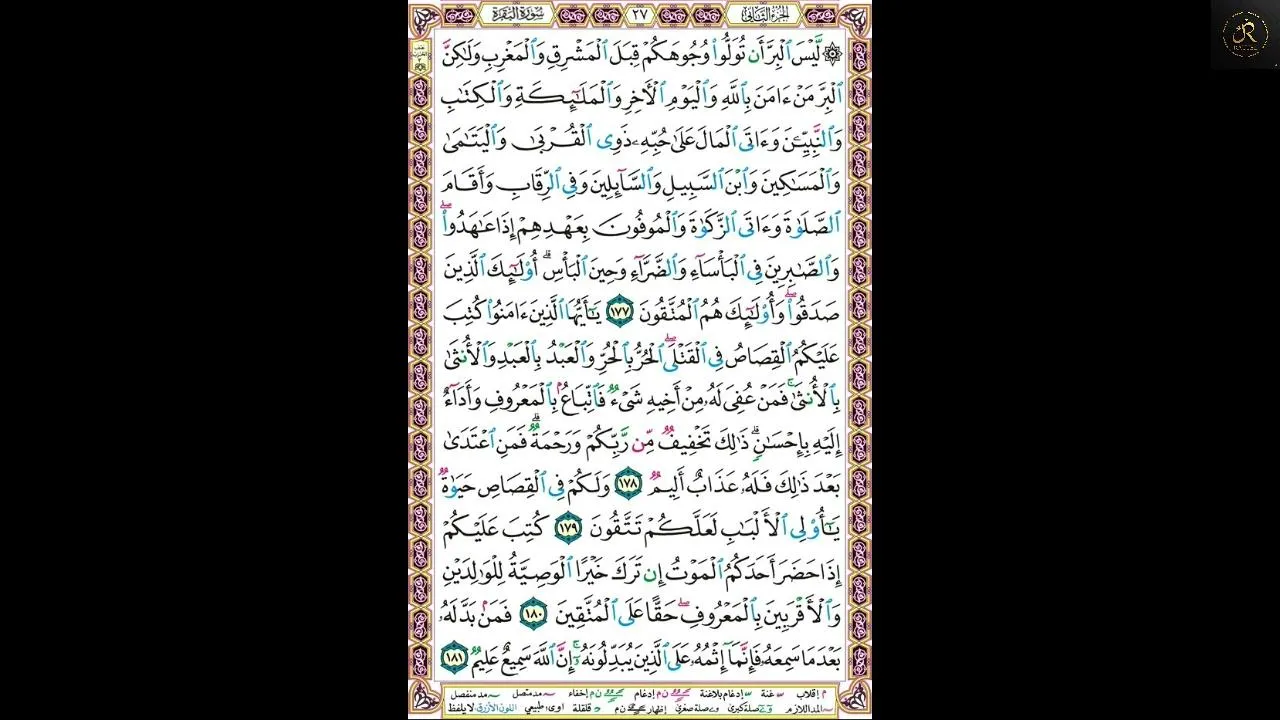 سورة البقرة ٢٧ الجزء الثاني
لَّيْسَ ٱلْبِرَّ أَن تُوَلُّوا۟ وُجُوهَكُمْ قِبَلَ ٱلْمَشْرِقِ وَٱلْمَغْرِبِ وَلَٰكِنَّ
ٱلْبِرَّ مَنْ ءَامَنَ بِٱللَّهِ وَٱلْيَوْمِ ٱلْأَخِرِ وَٱلْمَلَٰٓئِكَةِ وَٱلْكِتَٰبِ
وَٱلنَّبِيِّـۧنَ وَءَاتَى ٱلْمَالَ عَلَىٰ حُبِّهِۦ ذَوِى ٱلْقُرْبَىٰ وَٱلْيَتَٰمَىٰ
وَٱلْمَسَٰكِينَ وَٱبْنَ ٱلسَّبِيلِ وَٱلسَّآئِلِينَ وَفِى ٱلرِّقَابِ وَأَقَامَ
ٱلصَّلَوٰةَ وَءَاتَى ٱلزَّكَوٰةَ وَٱلْمُوفُونَ بِعَهْدِهِمْ إِذَا عَٰهَدُوا۟ۖ
وَٱلصَّٰبِرِينَ فِى ٱلْبَأْسَآءِ وَٱلضَّرَّآءِ وَحِينَ ٱلْبَأْسِۗ أُو۟لَٰٓئِكَ ٱلَّذِينَ
صَدَقُوا۟ۖ وَأُو۟لَٰٓئِكَ هُمُ ٱلْمُتَّقُونَ ١٧٧ يَٰٓأَيُّهَا ٱلَّذِينَ ءَامَنُوا۟ كُتِبَ
عَلَيْكُمُ ٱلْقِصَاصُ فِى ٱلْقَتْلَىۖ ٱلْحُرُّ بِٱلْحُرِّ وَٱلْعَبْدُ بِٱلْعَبْدِ وَٱلْأُنثَىٰ
بِٱلْأُنثَىٰۚ فَمَنْ عُفِىَ لَهُۥ مِنْ أَخِيهِ شَىْءٌ فَٱتِّبَاعٌۢ بِٱلْمَعْرُوفِ وَأَدَآءٌ
إِلَيْهِ بِإِحْسَٰنٍۗ ذَٰلِكَ تَخْفِيفٌ مِّن رَّبِّكُمْ وَرَحْمَةٌۗ فَمَنِ ٱعْتَدَىٰ
بَعْدَ ذَٰلِكَ فَلَهُۥ عَذَابٌ أَلِيمٌ ١٧٨ وَلَكُمْ فِى ٱلْقِصَاصِ حَيَوٰةٌ
يَٰٓأُو۟لِى ٱلْأَلْبَٰبِ لَعَلَّكُمْ تَتَّقُونَ ١٧٩ كُتِبَ عَلَيْكُمْ
إِذَا حَضَرَ أَحَدَكُمُ ٱلْمَوْتُ إِن تَرَكَ خَيْرًا ٱلْوَصِيَّةُ لِلْوَٰلِدَيْنِ
وَٱلْأَقْرَبِينَ بِٱلْمَعْرُوفِۖ حَقًّا عَلَى ٱلْمُتَّقِينَ ١٨٠ فَمَنۢ بَدَّلَهُۥ
بَعْدَمَا سَمِعَهُۥ فَإِنَّمَآ إِثْمُهُۥ عَلَى ٱلَّذِينَ يُبَدِّلُونَهُۥٓۚ إِنَّ ٱللَّهَ سَمِيعٌ عَلِيمٌ ١٨١
م إقلاب غنة إدغام بلاغنة ن م إدغام ن م إخفاء مد متصل مد منفصل
المد اللازم صلة كبرى صلة صغرى إظهار ن م قلقلة اوى طبيعي اللون الأزرق لا يلفظ